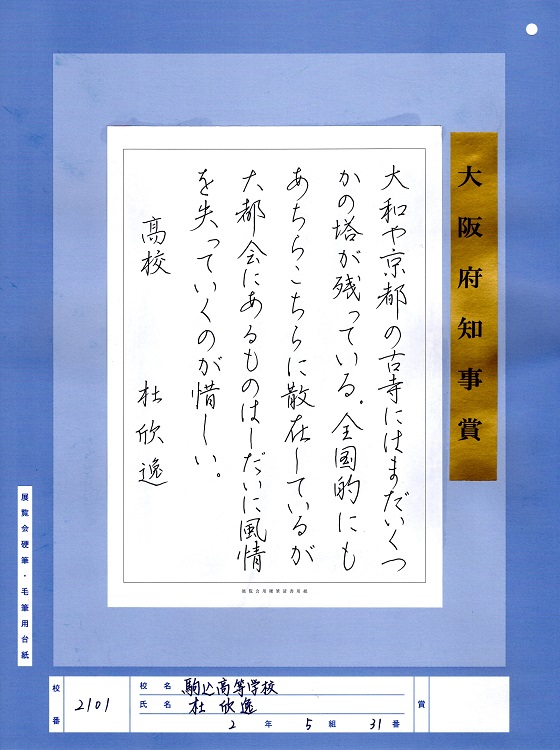 大阪府知事賞
大和や京都の古寺にはまだいくつ
かの塔が残っている。全国的にも
あちらこちらに散在しているが
大都会にあるものはしだいに風情
を失っていくのが惜しい。
高校 杜欣逸
展覧会用硬筆清書用紙
展覧会硬筆・毛筆用台紙
校番 2101
校名 駒込高等学校
氏名 杜欣逸
2年5組31番
賞